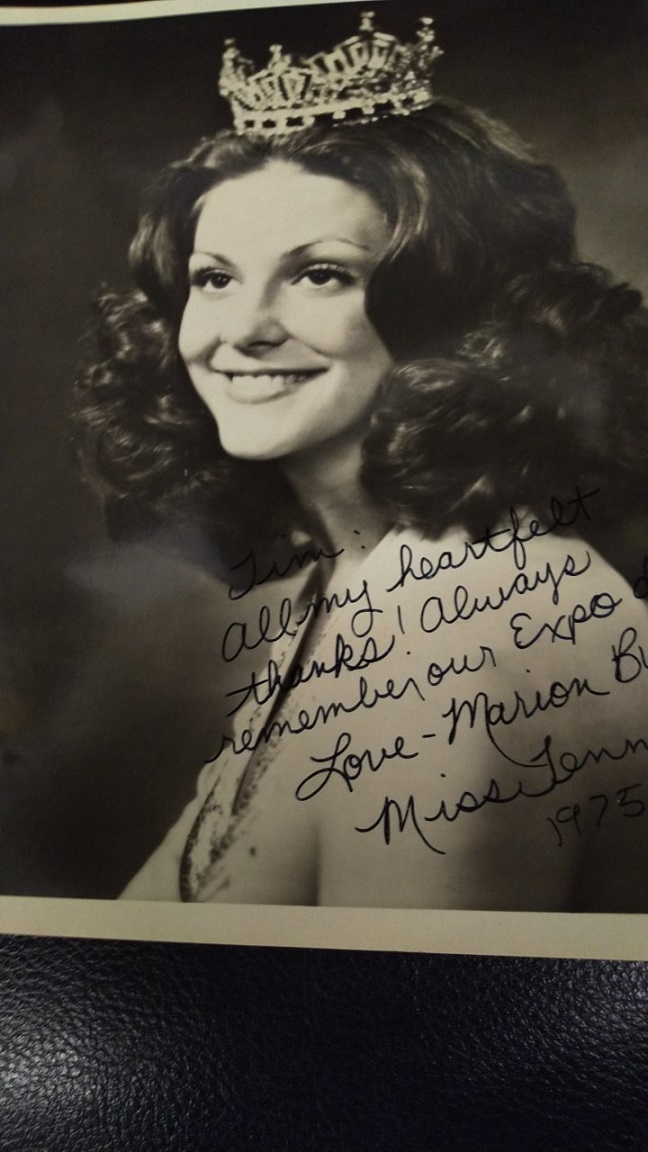 Tim:
All my heartfelt
thanks! Always
remember our Expo
Love - Marion
Miss Tenn
1975